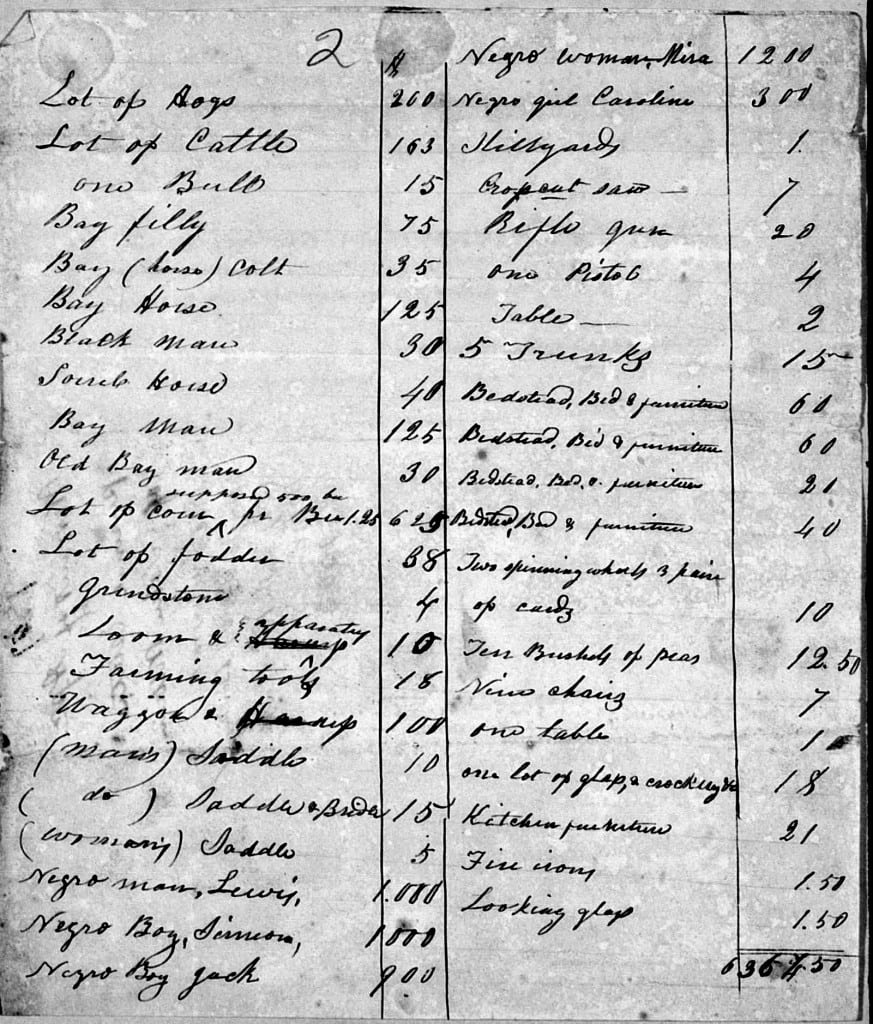 2
$
Lot of Hogs 260
Lot of Cattle 163
one Bull 15
Bay filly 75
Bay (horse) Colt 35
Bay Horse 125
Black mare 30
Sorrel Horse 40
Bay mare 125
Old Bay mare 30
supposed 500 bu
Lot of corn pr Bu 1.25 625
Lot of fodder 38
Grindstone 4
apparatus
Loom & 10
Farming tools 18
Waggon & Harness 100
(man's) Saddle 10
( do ) Saddle & Bridle 15
(woman's) Saddle 5
Negro man, Lewis, 1.000
Negro Boy, Simeon, 1000
Negro Boy Jack 900
Negro woman, Mira 1200
Negro girl Caroline 300
Stillyards 1.
Cropcut saw — 7
Rifle gun 20
one Pistol 4
Table — 2
5 Trunks 15
Bedstead, Bed & furniture 60
Bedstead, Bed & furniture 60
Bedstead, Bed, & furniture 20
Bedstead, Bed & furniture 40
Two spinning wheels 3 pair
of cards 10
Ten Bushels of peas 12.50
Nine chairs 7
one table 1
one lot of glass, & crockery &c 18
Kitchen furniture 21
Fire irons 1.50
Looking glass 1.50
6364 50